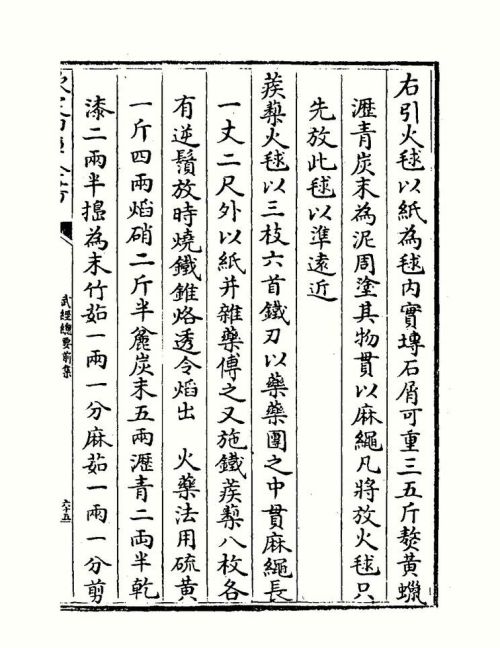 右引火毬以紙為毬内實塼石屑可重三五斤熬黄蠟
瀝青炭末為泥周塗其物貫以麻繩凡將放火毬只
先放此毬以準遠近
蒺蔾火毬以三枝六首鐵刃以藥藥團之中貫麻繩長
一丈二尺外以紙并雜藥傅之又施鐵蒺蔾八枚各
有逆鬚放時燒鐵錐烙透令焰出　火藥法用硫黄
一斤四兩焰硝二斤半麄炭末五兩瀝青二兩半乾
漆二兩半搗為末竹茹一兩一分麻茹一兩一分剪
武經總要前集
六十五